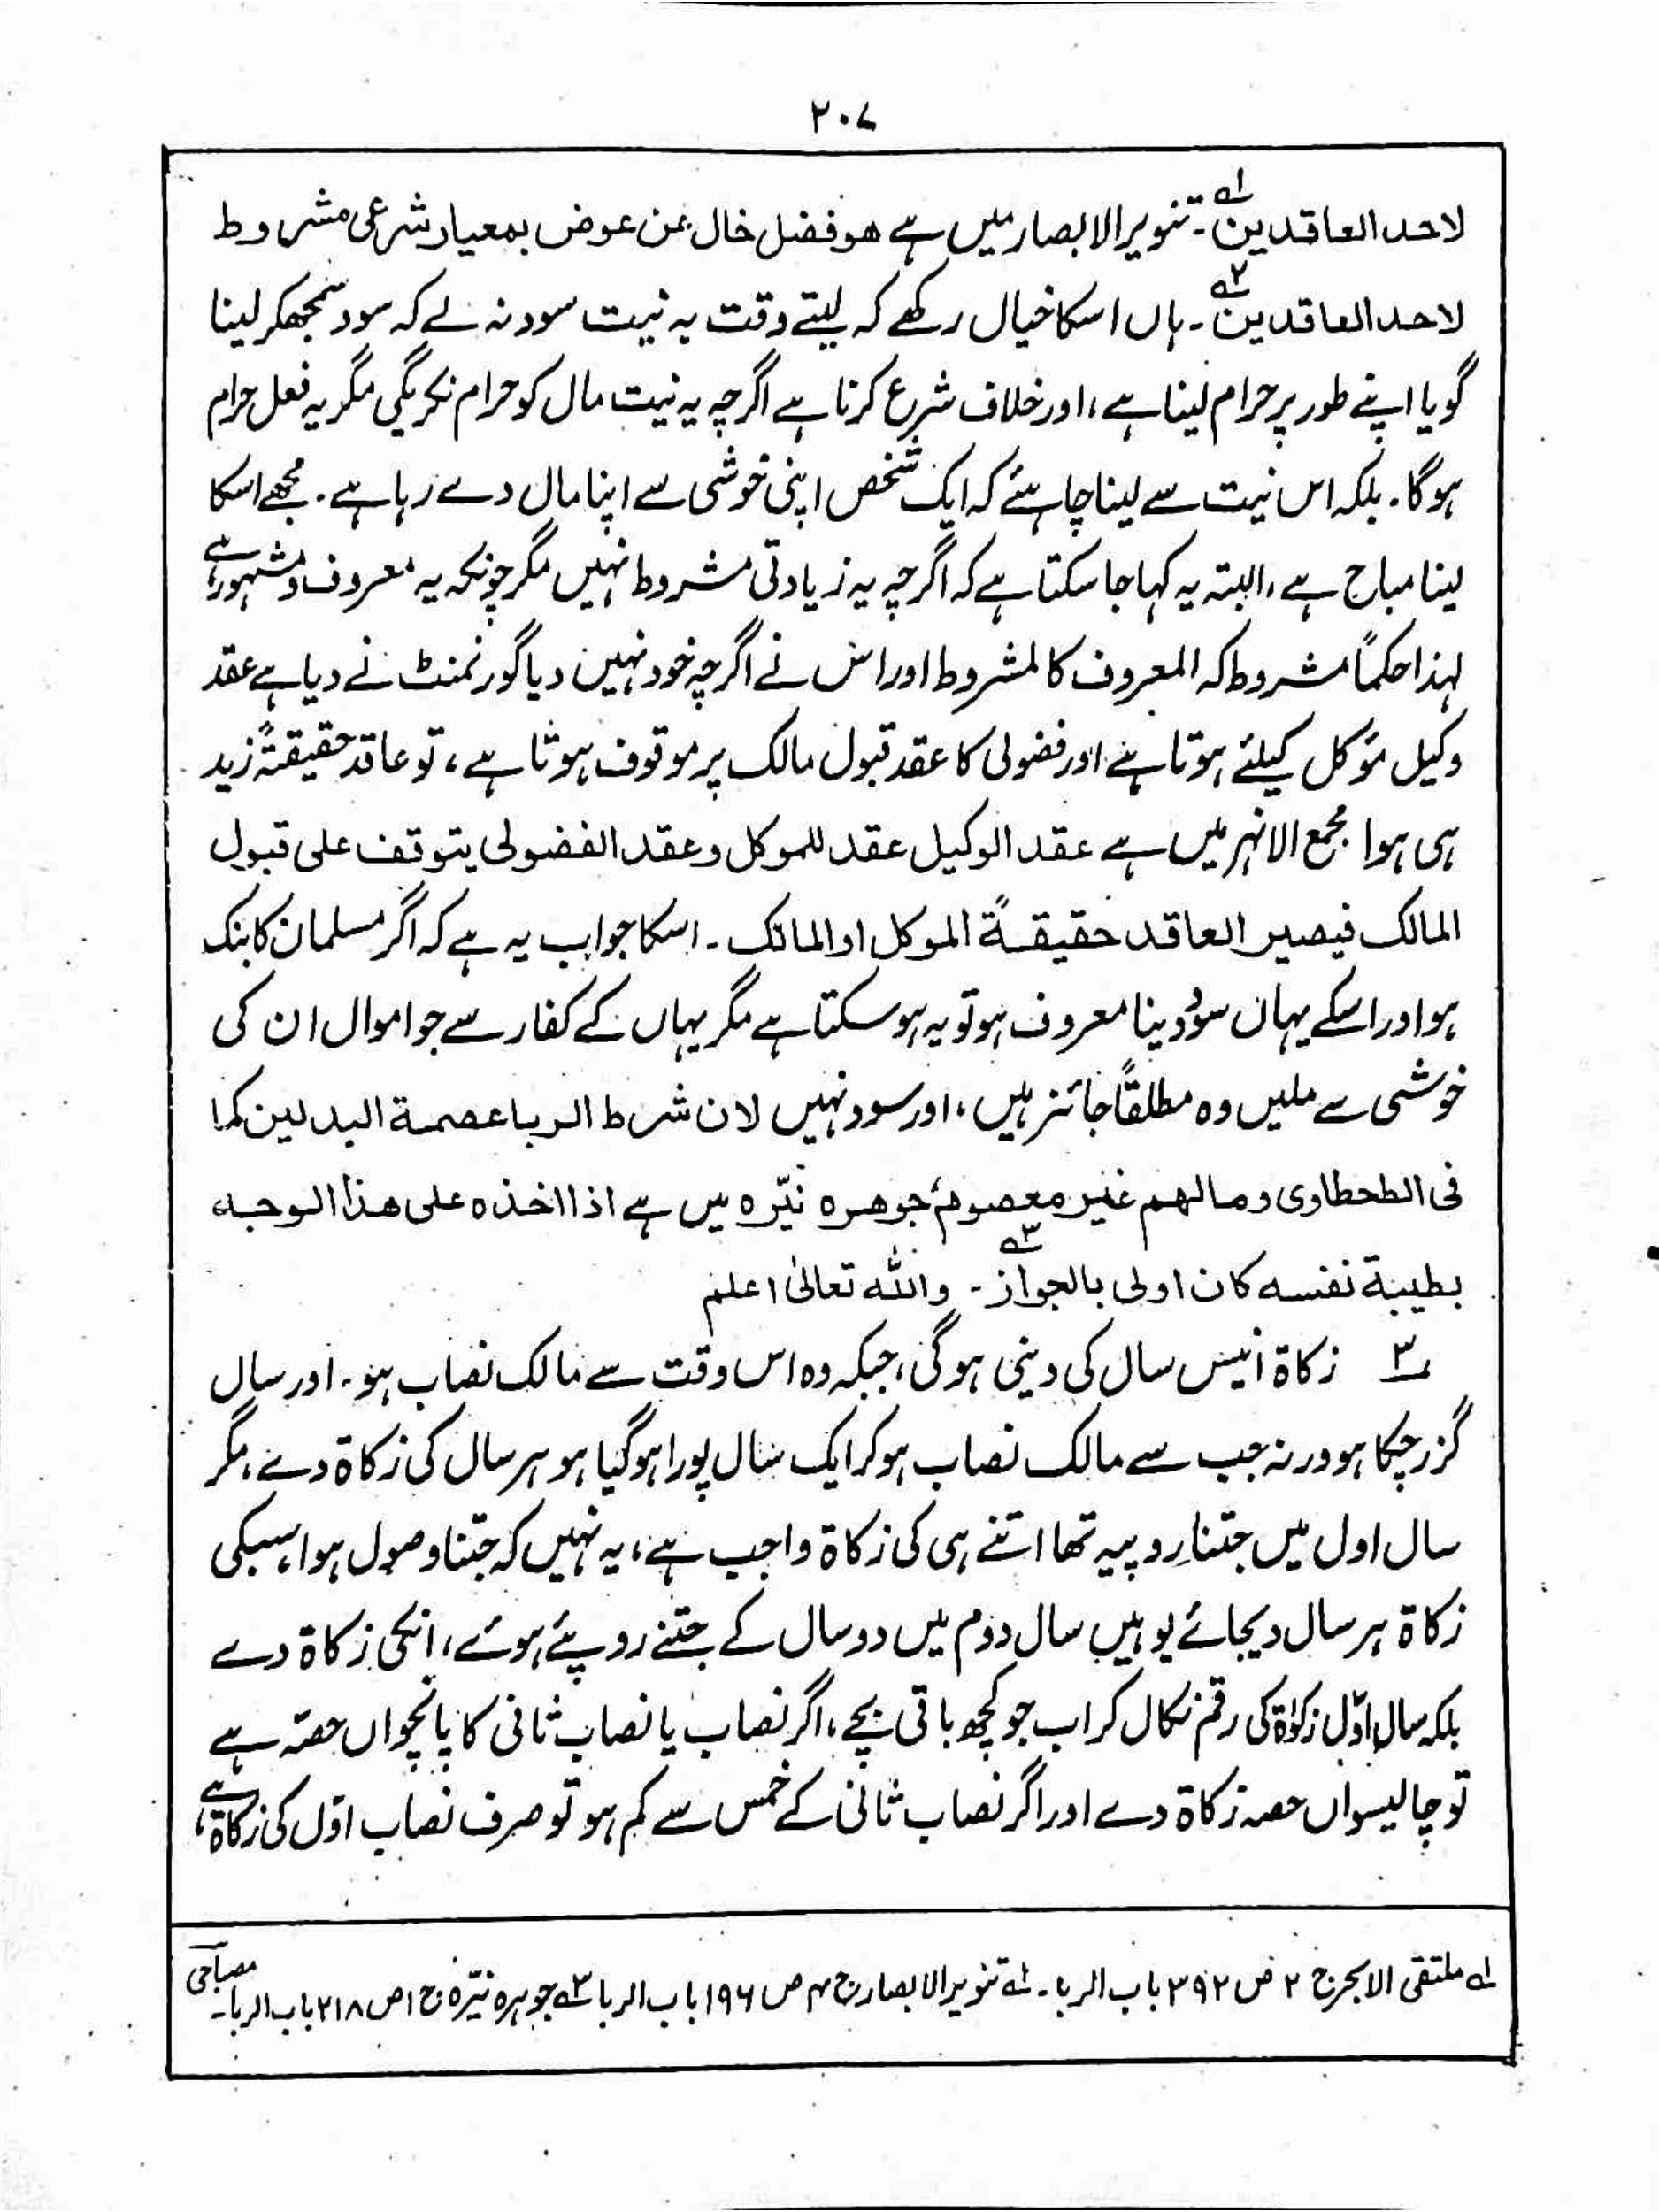 ۲۰۷
لاحد العاقدین ۱؎۔ تنویر الابصار میں ہے ھو فضل خال عن عوض بمعیار شرعی مشروط
لاحد العاقدین ۲؎۔ ہاں اسکا خیال رکھے کہ لیتے وقت بہ نیت سود نہ لے کہ سود سمجھکر لینا
گویا اپنے طور پر حرام لینا ہے، اور خلاف شرع کرنا ہے اگرچہ یہ نیت مال کو حرام نکریگی مگر یہ فعل حرام
ہوگا۔ بلکہ اس نیت سے لینا چاہئے کہ ایک شخص اپنی خوشی سے اپنا مال دے رہا ہے۔ مجھے اسکا
لینا مباح ہے، البتہ یہ کہا جا سکتا ہے کہ اگرچہ یہ زیادتی مشروط نہیں مگر چونکہ یہ معروف و مشہور ہے،
لہذا حکماً مشروط کہ المعروف کالمشروط اور اس نے اگرچہ خود نہیں دیا گورنمنٹ نے دیا ہے عقد
وکیل مؤکل کیلئے ہوتا ہے اور فضولی کا عقد قبول مالک پر موقوف ہوتا ہے، تو عاقد حقیقتہً زید
ہی ہوا مجمع الانہر میں ہے عقد الوکیل عقد للموکل وعقد الفضولی یتوقف علی قبول
المالک فیصیر العاقد حقیقۃً الموکل او المالک۔ اسکا جواب یہ ہے کہ اگر مسلمان کا بنک
ہو اور اسکے یہاں سود دینا معروف ہو تو یہ ہو سکتا ہے مگر یہاں کے کفار سے جو اموال ان کی
خوشی سے ملیں وہ مطلقاً جائز ہیں، اور سود نہیں لان شرط الربا عصمۃ البدلین کما
فی الطحطاوی ومالھم غیر معصوم، جوھرہ نیّرہ میں ہے اذا اخذہ علی ھذا الوجہ
بطیبۃ نفسہ کان اولی بالجواز ۳؎۔ واللہ تعالیٰ اعلم
۳؎ زکاۃ انیس سال کی دینی ہوگی، جبکہ وہ اس وقت سے مالک نصاب ہو۔ اور سال
گزر چکا ہو ورنہ جب سے مالک نصاب ہوکر ایک سال پورا ہوگیا ہو ہر سال کی زکاۃ دے، مگر
سال اول میں جتنا روپیہ تھا اتنے ہی کی زکاۃ واجب ہے، یہ نہیں کہ جتنا وصول ہوا، سبکی
زکاۃ ہر سال دیجائے یوہیں سال دوم میں دو سال کے جتنے روپئے ہوئے، انکی زکاۃ دے
بلکہ سال اوّل زکوٰۃ کی رقم نکال کر اب جو کچھ باقی بچے، اگر نصاب یا نصاب ثانی کا پانچواں حصّہ ہے
تو چالیسواں حصہ زکاۃ دے اور اگر نصاب ثانی کے خمس سے کم ہو تو صرف نصاب اوّل کی زکاۃ ہے،
۱؎ ملتقی الابحر ج ۲ ص ۳۹۲ باب الربا۔ ۲؎ تنویر الابصار ج ۴ ص ۱۹۶ باب الربا ۳؎ جوہرہ نیّرہ ج ۱ ص ۲۱۸ باب الربا۔ مصباحی